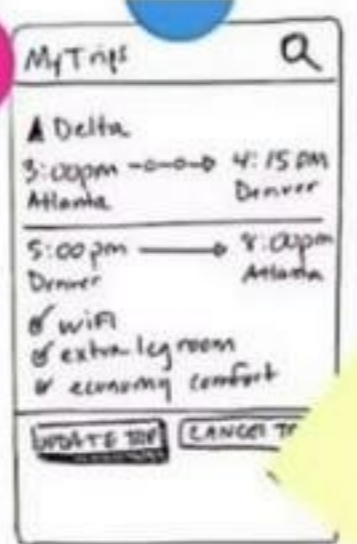 MyTrips
Delta
3:00pm 4:15pm
Atlanta Denver
5:00pm 8:00pm
Denver Atlanta
wifi
extra legroom
economy comfort
UPDATE CANCEL